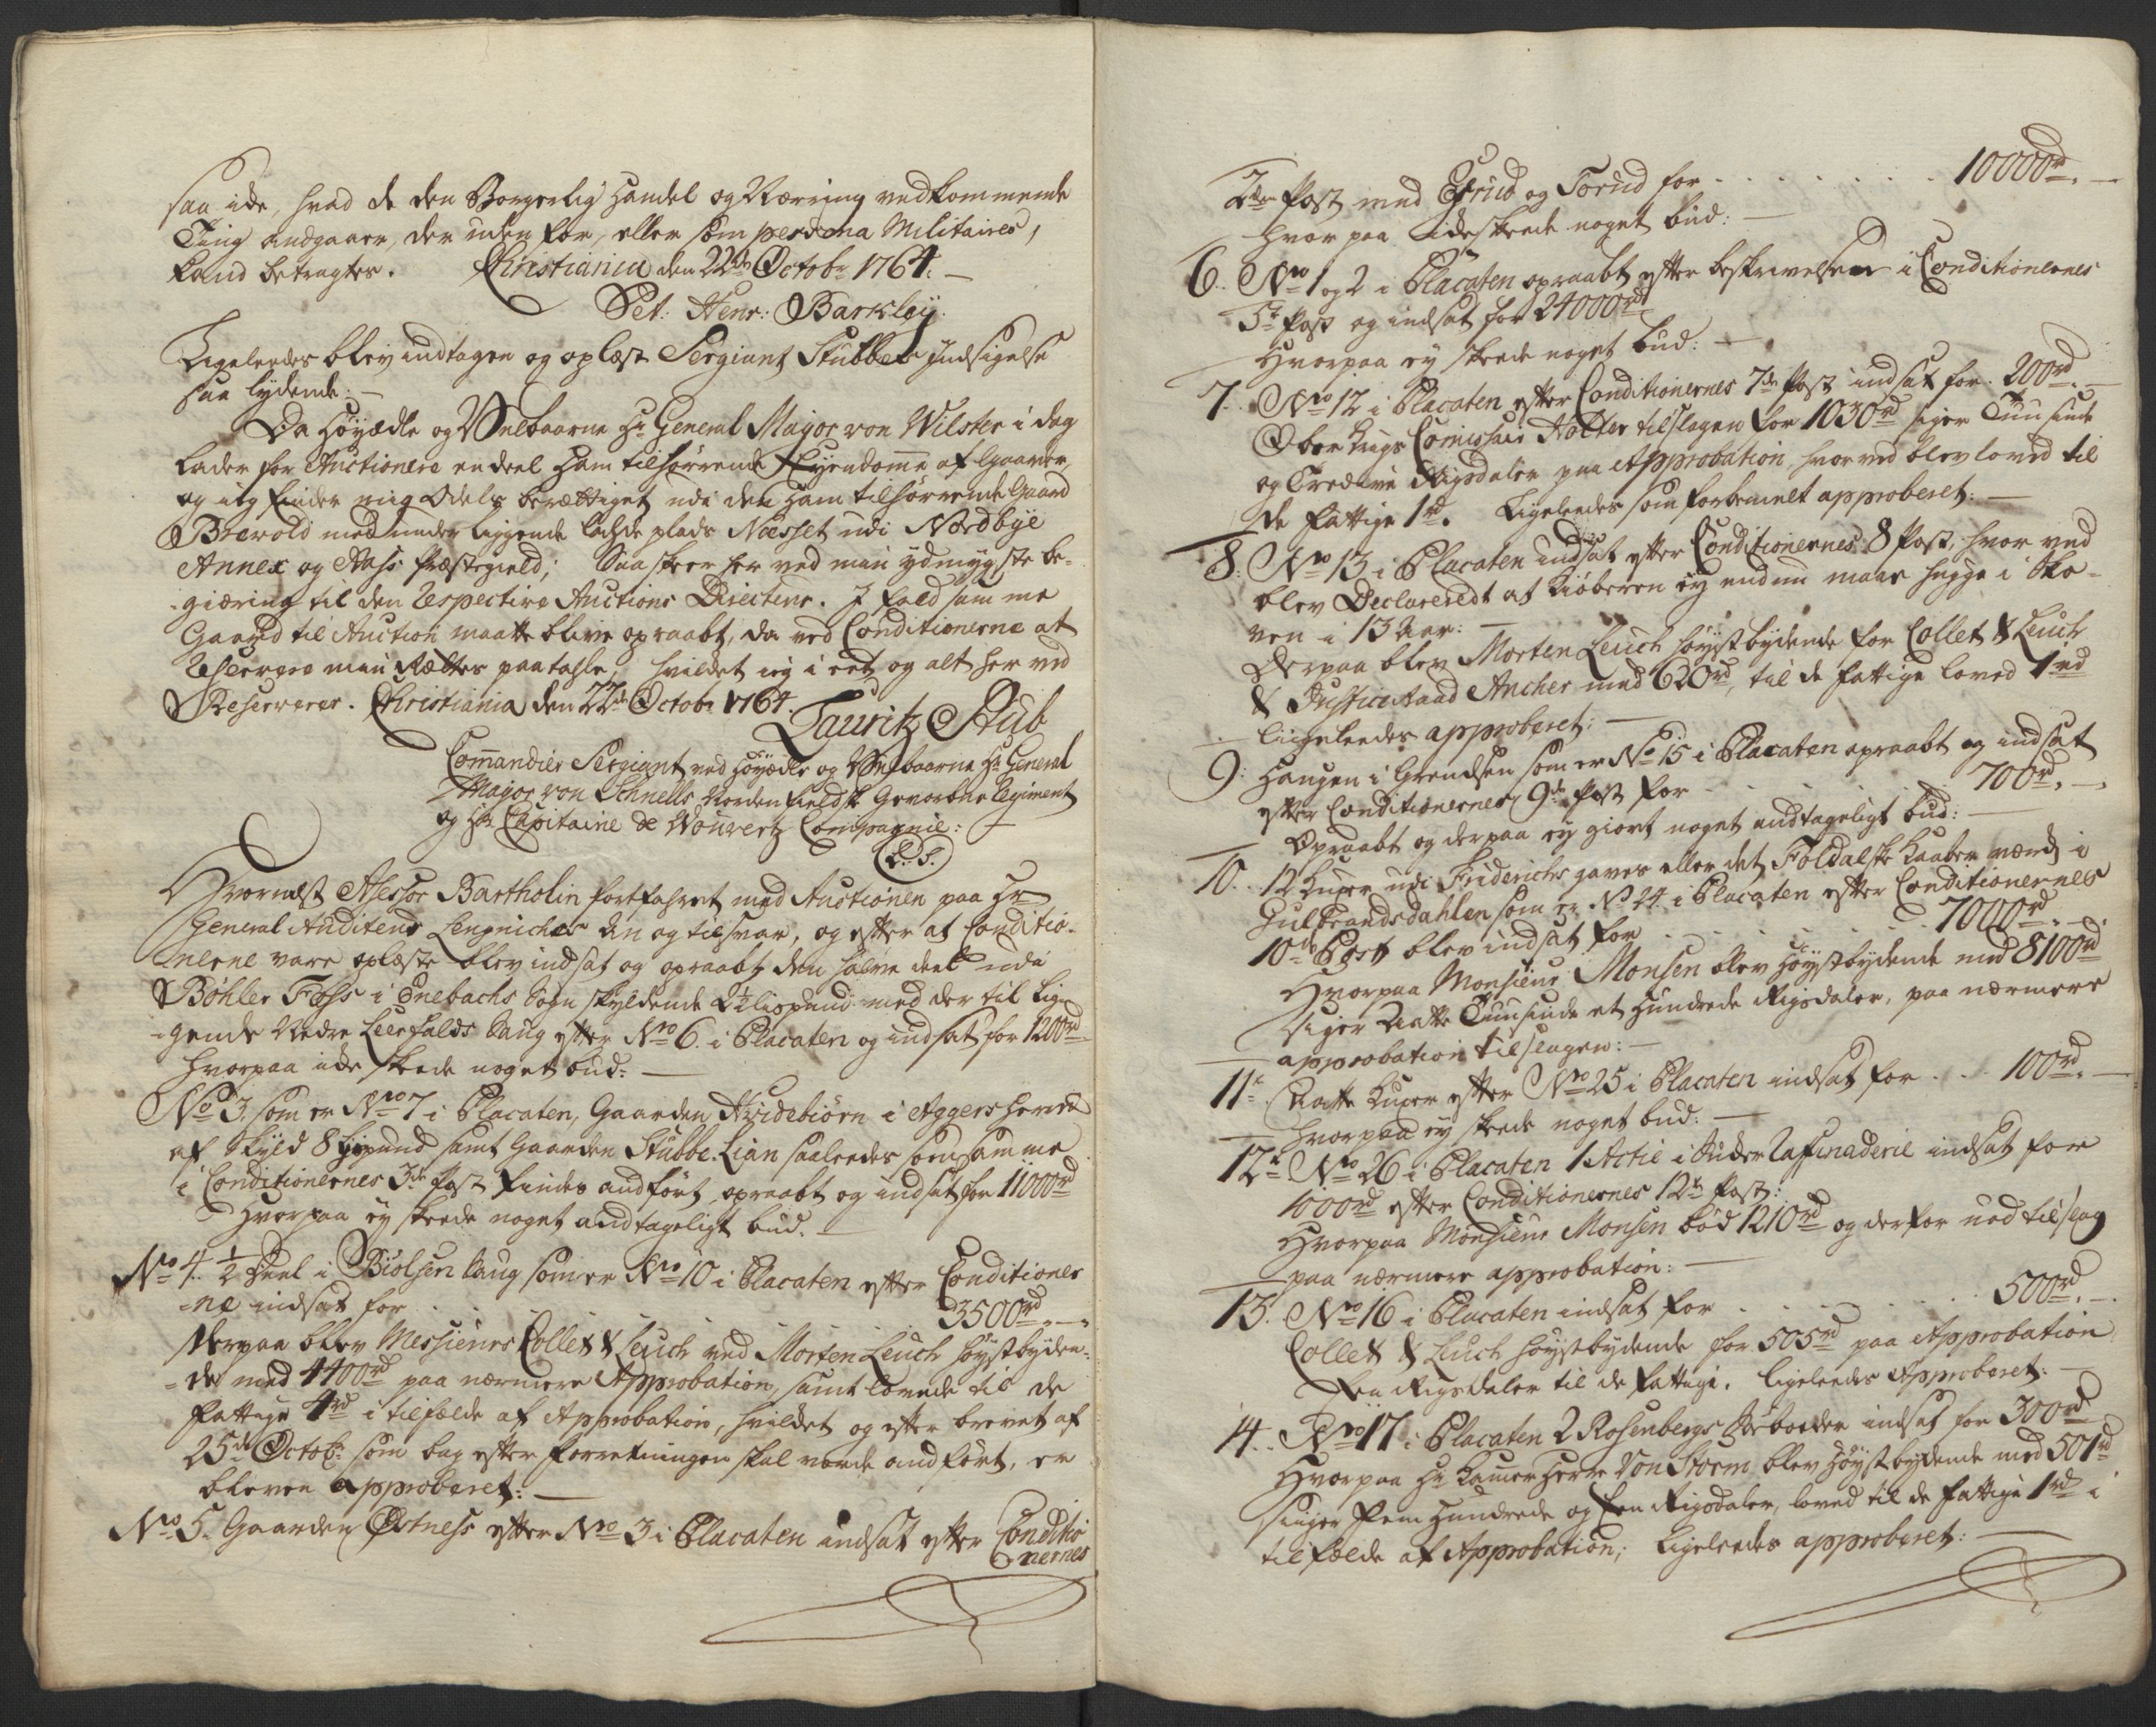 saa ide, hvad de den Borgerlig Handel og Næring vedkommende
Ting andgaaer, der uden for, eller som persona Militaires,
kand betragtes. Christiania den 22de Octobr 1764.
Pet: Henr: Barkley.
Ligeleedes blev indtagen og oplæst Sergiant Stubbes Indsigelse
saa lydende:
Da Høyædle og Velbaarne Hr General Major von Wilster i dag
lader for Auctionere en deel Ham tilhørende Eyendomme af Gaarder,
og ieg finder mig Odels berættiget udi den Ham tilhørrende Gaard
Brevold med underliggende ladde plads Næsset udi Nordbye
Annex og Aass Præstegield; Saa skeer her ved min ydmygste be-
giæring til den Respective Auctions Directeur. I fald samme
Gaard til Auction maatte blive opraabt, da ved Conditionerne at
Reservere min Rættes paatahle, hvildet ieg i eet og alt her ved
Reserverer. Christiania den 22de Octobr 1764.
Lauritz Stub
Commandier Sergiant ved Høyædle og Velbaarne Hr General
Major von Schnells Nordenfieldske Gevorbne Regiment
og Hr Capitaine de Wouvertz Compagnie:
L. S.
Hvornæst Assessor Bartholin fortfahret med Auctionen paa Hr
General Auditeur Lengnichs An og tilsvar, og efter at Conditio-
nerne vare oplæste blev indsat og opraabt den halve deel udi
Bøhler Foss i Enebachs Sogn skyldende 2½ lispund med der til lig-
gende Nedre Leerfalds Saug efter No 6. i Placaten og indsat for 1200rd
hvorpaa ide skeede noget bud:
No 3. som er No 7 i Placaten, Gaarden Hvidebiørn i Aggersherret
af Skyld 8 Lispund samt Gaarden Stubbe-Lian saaleedes som samme
i Conditionernes 3die Post findes andført, opraabt og indsat for 11000rd
Hvorpaa ey skeede noget andtageligt bud.
No 4. ½ Deel i Biølsen Saug som er No 10 i Placaten efter Conditioner
ne indsat for 3500rd.
Derpaa blev Messieurs Collet & Leuch ved Morten Leuch høystbyden-
de med 4400rd paa nærmere Approbation, samt lovede til de
fattige 4rd i tilfælde af Approbation, hvildet og efter brevet af
25de Octobr som bag efter forretningen skal vorde andført, er
bleven approberet:
No 5. Gaarden Østness efter No 3 i Placaten indsat efter Conditio
nernes
2den Post med Grud og Torud for 10000rd.
hvor paa ide skeede noget bud:
6. No 1 og 2 i Placaten opraabt efter beskrivelsen i Conditionernes
5te Post og indsat for 24000rd
Hvorpaa ey skeede noget bud:
7. No 12 i Placaten efter Conditionernes 7de Post indsat for 200rd.
Ober Krigs Comissair Holter tilslagen for 1030rd siger Tuusinde
og Tredive Rigsdaler paa Approbation, hvorved blev loved til
de fattige 1rd. Ligeleedes som forbemelt approberet:
8. No 13 i Placaten indsat efter Conditionernes 8 Post, hvor ved
blev Declareredt at Kiøberen ey endnu maae hugge i Sko-
ven i 13 Aar:
Derpaa blev Morten Leuch høystbydende for Collet & Leuch
& Justice Raad Ancher med 620rd, til de fattige loved 1rd
ligeleedes approberet:
9. Haugen i Grendsen som er No 15 i Placaten opraabt og indsat
efter Conditionernes 9de Post for 700rd.
Opraabt og derpaa ey giort noget andtageligt bud:
10. 12 Kuxer udi Friderichs gaves eller det Foldalske Kaaber værch i
Gulbrandsdahlen som er No 24 i Placaten efter Conditionernes
10de Post blev indsat for 7000rd.
Hvorpaa Monsieur Monsen blev høystbydende med 8100rd
siger Aatte Tuusinde et Hundrede Rigsdaler, paa nærmere
approbation tilslagen:
11. Aatte Kuxer efter No 25 i Placaten indsat for 100rd.
hvorpaa ey skeede noget bud:
12te No 26 i Placaten 1 Actie i Suder Rafinaderie indsat for
1000rd efter Conditionernes 12te Post:
Hvorpaa Monsieur Monsen bød 1210rd og derfor ned tilslag
paa nærmere approbation:
13. No 16 i Placaten indsat for 500rd.
Collet & Leuch høystbydende for 505rd paa Approbation
Een Rigsdaler til de fattige. ligeleedes Approberet:
14. No 17 i Placaten 2 Rosenbergs Søeboeder indsat for 300rd
Hvorpaa Hr Kamer Herre Von Storm blev høystbydende med 501rd
siiger Fem Hundrede og Een Rigsdaler, loved til de fattige 1rd i
tilfælde af Approbation; Ligeleedes approberet: